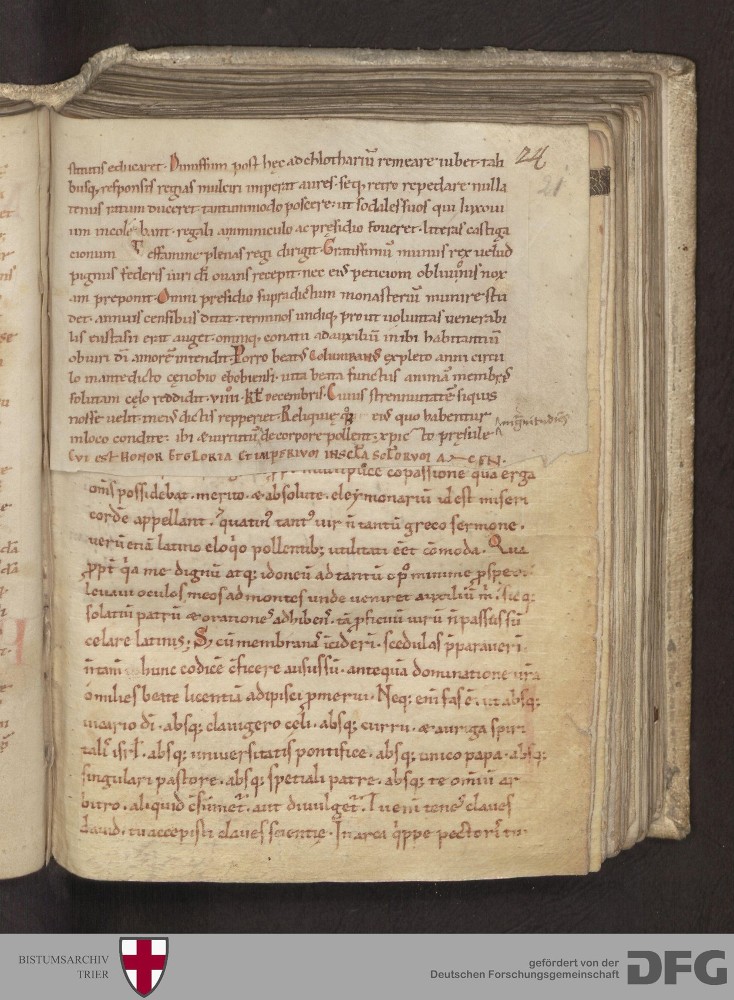 stitutis educaret. Punissim post hęc ad chlothariū remeare iubet. tali
busq; responsis regias mulciri imperat aures. seq; retro repedare nulla
tenus ratum duceret. tantummodo poscere. ut sodales suos qui luxoui
um incolebant. regali amminiculo ac pręsidio foueret. literas castiga
cionum effamine plenas regi dirigit. Gratissimū munus rex uelud
pignus federis uiri di ouans recepit. nec eius peticionem obliuionis nox
am preponit. Omni presidio supradictum monasteriū munire stu
det. annuis censibus ditat. terminos undiq; prout uoluntas uenerabi
lis eustasii erit auget. omniq; conatu ad auxiliū inibi habitantium
ob uiri di amorē intendit. Porro beatus Columbanus expleto anni circu
lo in antedicto cęnobio ebobiensi. uita beata functus animā membris
solutam cęlo reddidit. viiii. kl decembris. Cuius strennuitatē siquis
nosse uelit. in eius dictis repperiet. Reliquię eius quo habentur
in loco condite. ibi & uirtutū decore pollent. xpic to pręsule
CVI EST HONOR ET GLORIA ET IMPERIVM IN SCLA SCLORVM AMEN.
24
21
copassione qua erga
om̄s possidebat. merito. & absolute. eleymonariū id est miseri
cordē appellant. quatin tant uir n̄ tantū greco sermone.
uerū etiā latino eloq̇o pollentib; utilitati eēt cōmoda. Quа
ppt q̇a me dignū atq; idoneū ad tantū op minime pspe
leuaui oculos meos ad montes unde ueniret auxiliū m. sicq;
solatiū patrū & oratione adhiben. tā pficuū uirū n̄ passus sū
celare latinis; S; cū membrana icideri. scedulas pparaueri
n̄tam hunc codicē cficere ausus sū. antequā dominatione ura
omilies beate licentiā adipisci pmerui. Neq; eni fas ē. ut absq;
uicario di. absq; clauigero celi. absq; curru. & auriga spiri
tali isrl. absq; uniuersitatis pontifice. absq; unico papa. absq;
singulari pastore. absq; spetiali patre. absq; te omiū ar
bitro. aliquid csumet. aut diuulget. Tu enī tenes claues
dauid. tu accepisti claues scientię. In arca q̇ppe pectoris tui
BISTUMSARCHIV
TRIER
gefördert von der
Deutschen Forschungsgemeinschaft
DFG